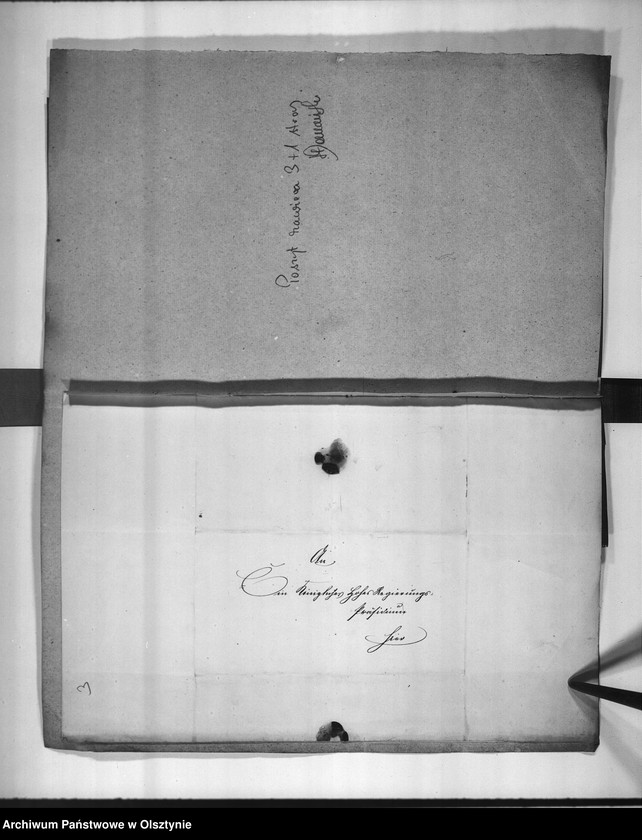 Poszyt zawiera 3+1 stron.
An
Ein Königliches Hohes Regierungs-
Präsidium
hier
3
Archiwum Państwowe w Olsztynie